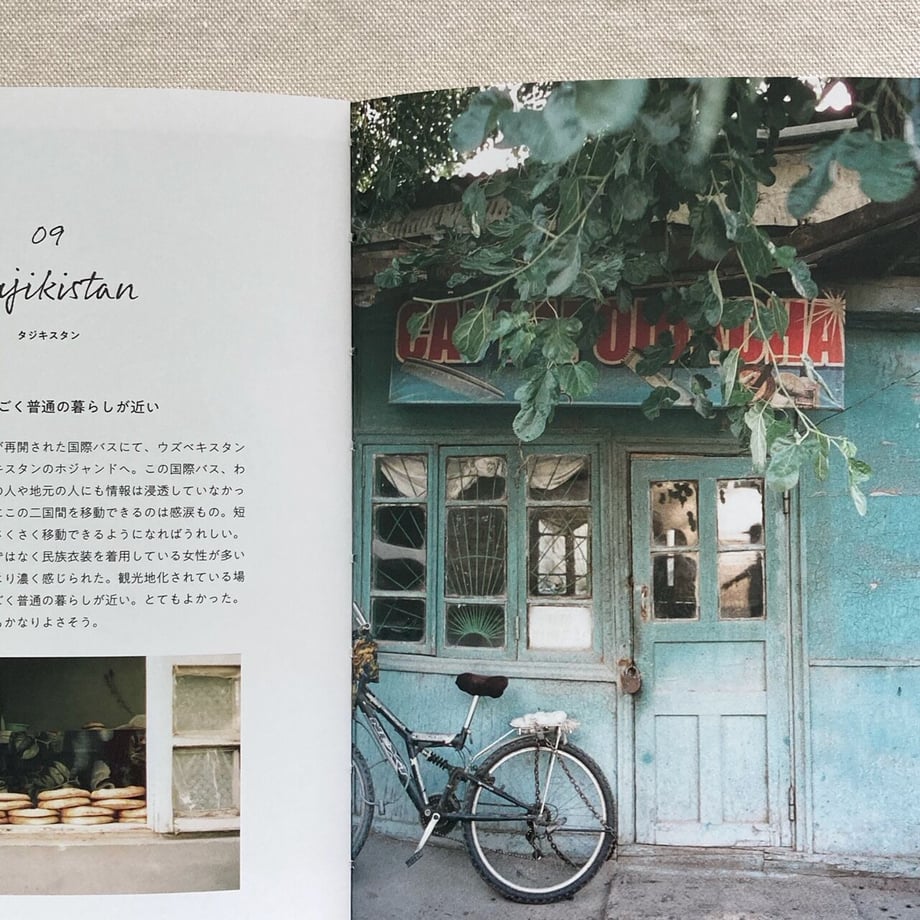 09
ajikistan
タジキスタン
ごく普通の暮らしが近い
が再開された国際バスにて、ウズベキスタン
キスタンのホジャンドへ。この国際バス、わ
の人や地元の人にも情報は浸透していなかっ
にこの二国間を移動できるのは感涙もの。短
くさく移動できるようになればうれしい。
ではなく民族衣装を着用している女性が多い
より濃く感じられた。観光地化されている場
ごく普通の暮らしが近い。とてもよかった。
もかなりよさそう。